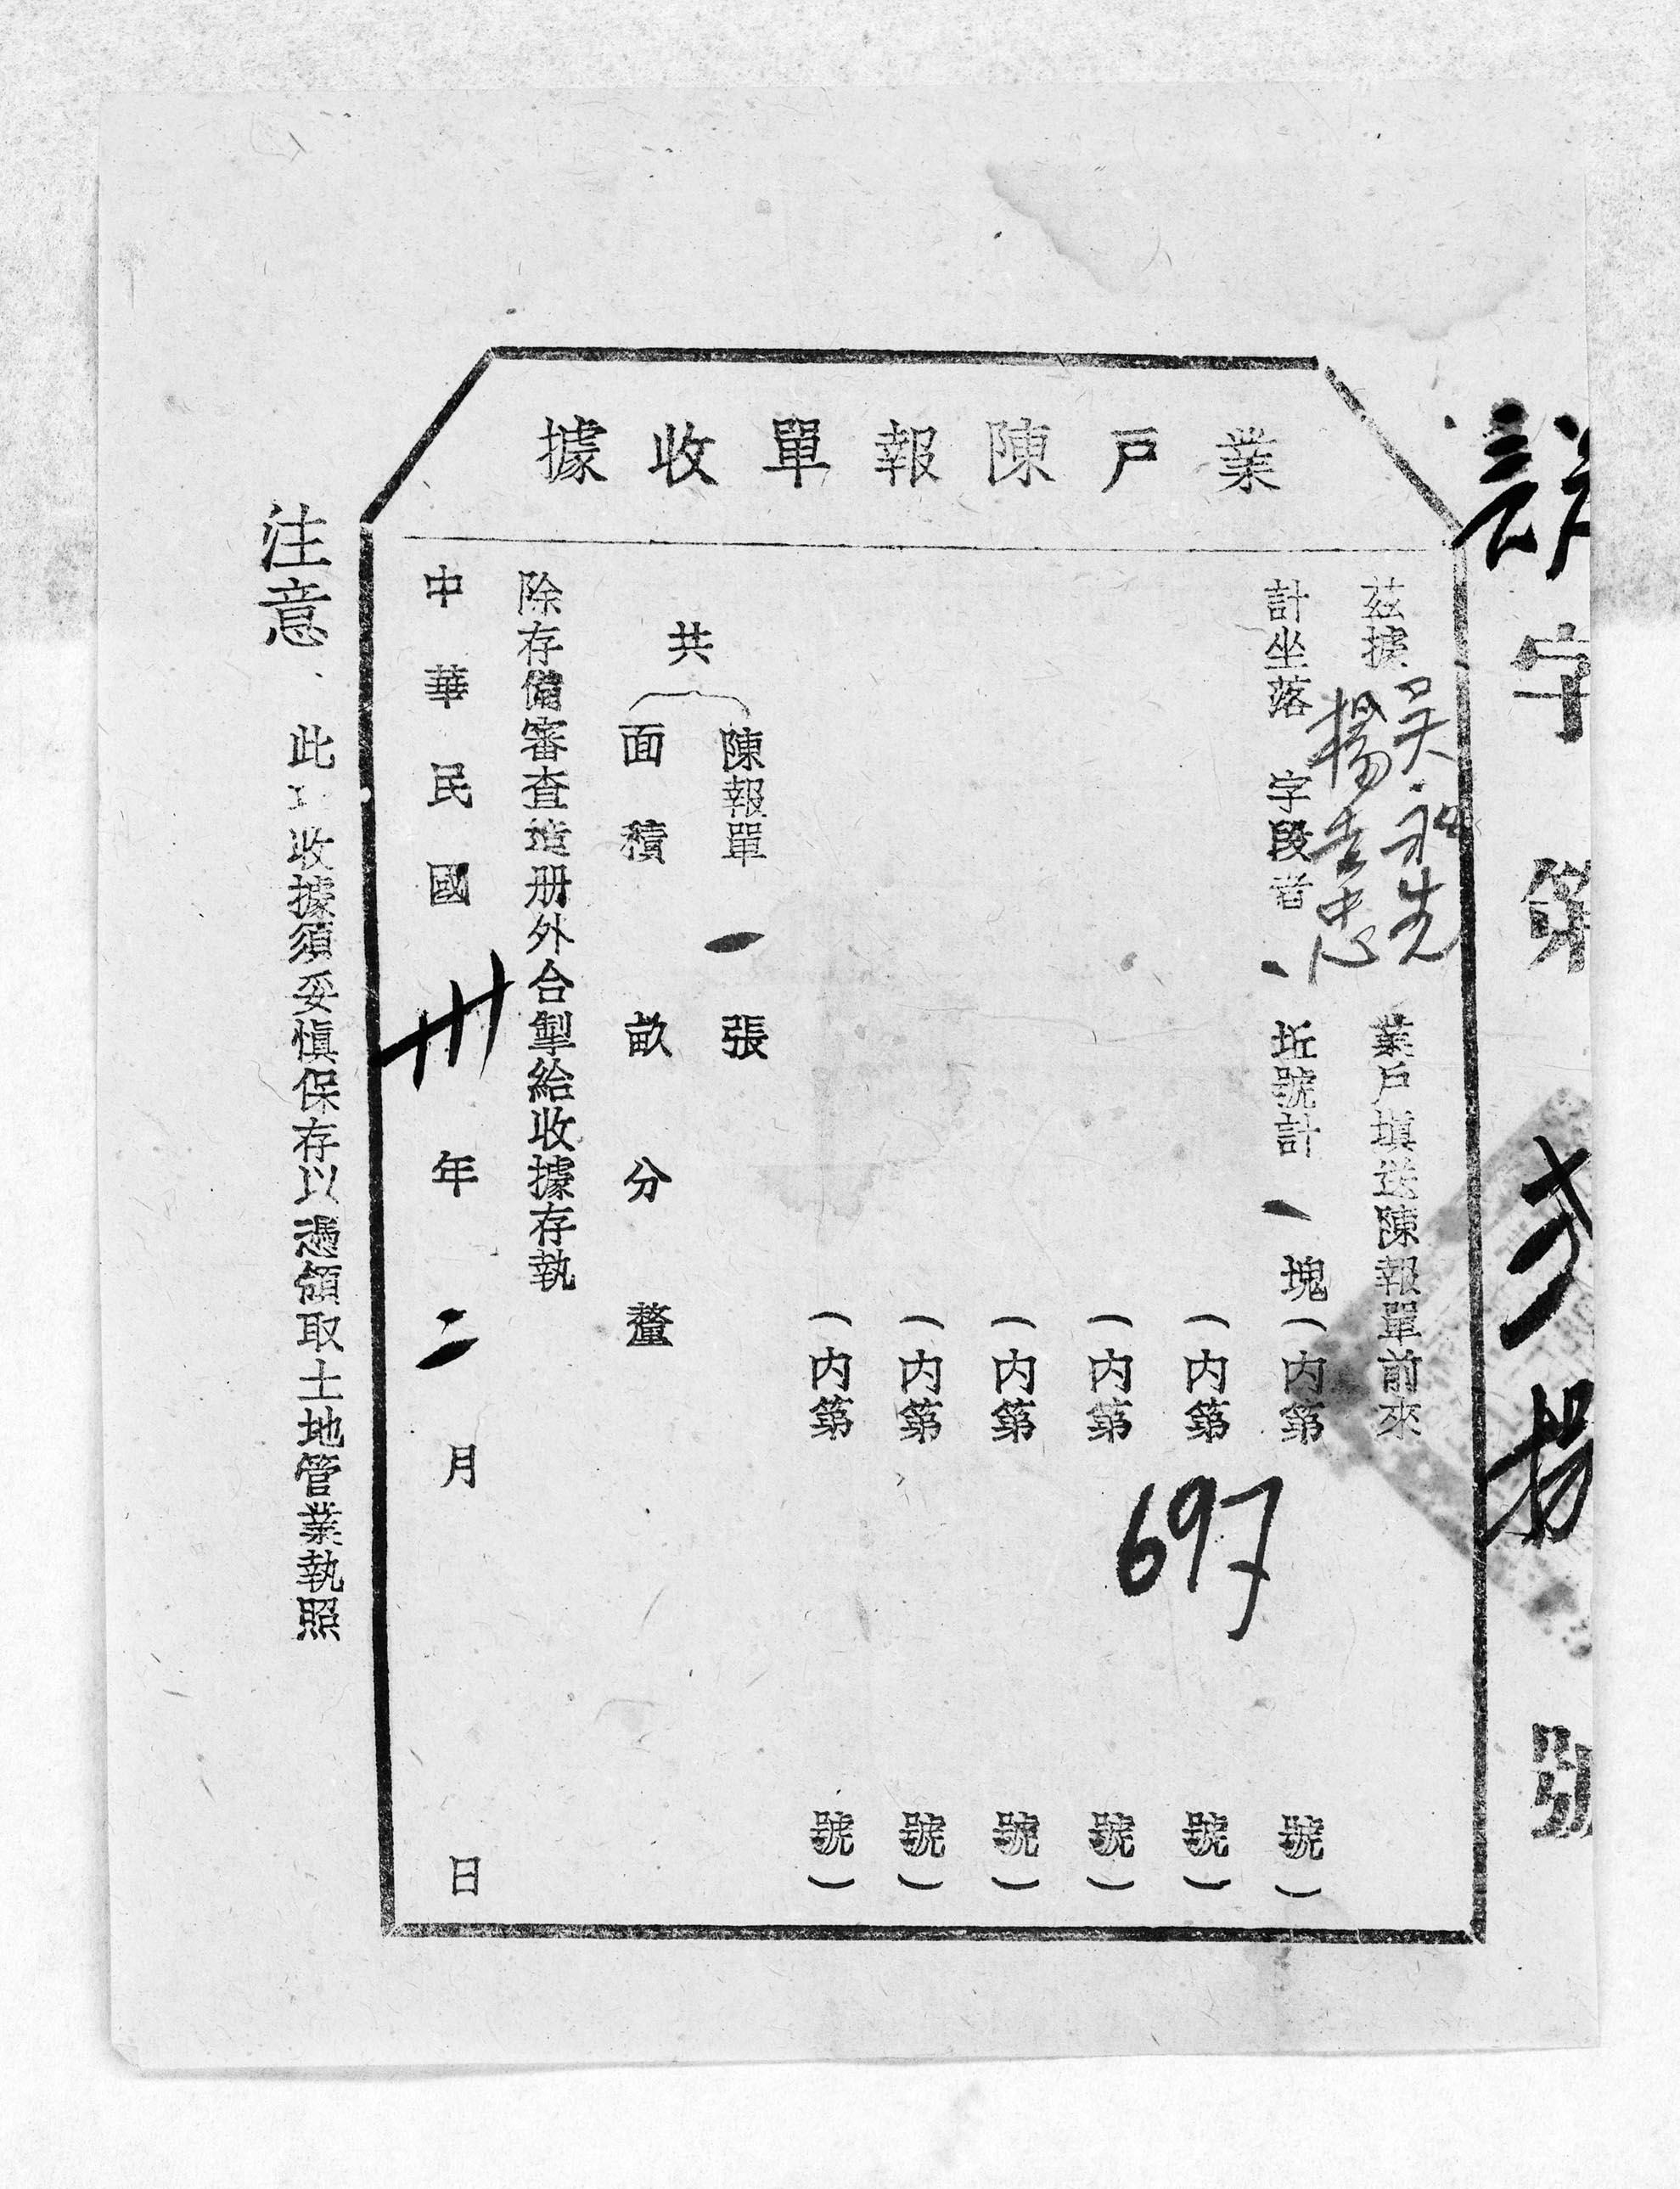 業戶陳報單收據
字第 號
茲據吳 先 業戶填送陳報單前來
楊 忠
計坐落 字段者 坵號計 一 塊(內第 697 號)
(內第 號)
(內第 號)
(內第 號)
(內第 號)
(內第 號)
共
陳報單 一 張
面積 畝 分 釐
除存備審查造册外合掣給收據存執
中華民國 卅 年 二 月 日
注意
此 收據須妥慎保存以憑領取土地管業執照